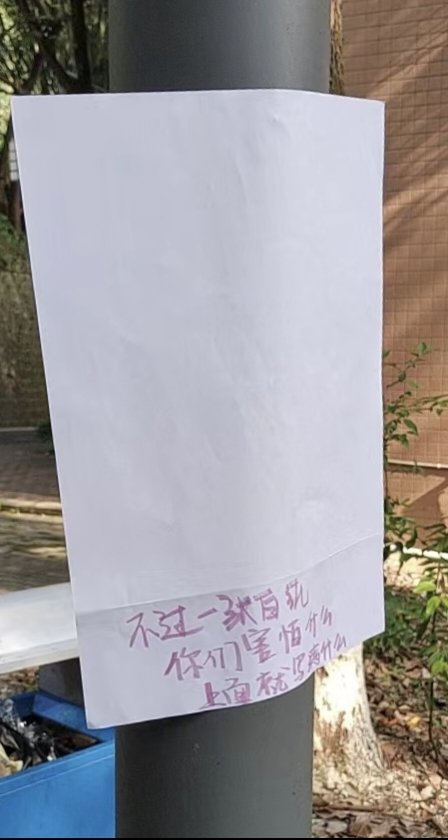 不过一张白纸
你们害怕什么
上面就写着什么